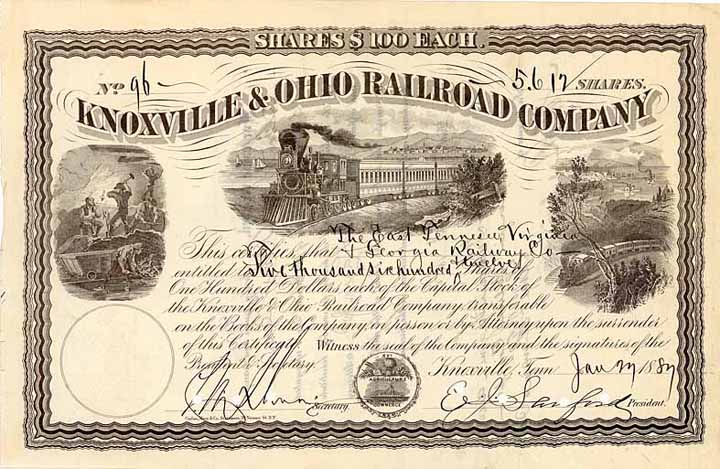 SHARES $100 EACH.
No 96
5.612 SHARES.
KNOXVILLE & OHIO RAILROAD COMPANY
This certifies, that The East Tennessee Virginia
& Georgia Railway Co
entitled to Five thousand six hundred & twelve Shares of
One Hundred Dollars each of the Capital Stock of
the Knoxville & Ohio Railroad Company, transferable
on the Books of the Company, in person or by Attorney upon the surrender
of this Certificate. Witness the seal of the Company and the signatures of the
President & Secretary.
AGRICULTURE
COMMERCE
Knoxville, Tenn Jan 1887
Secretary.
E. J. Sanford President.